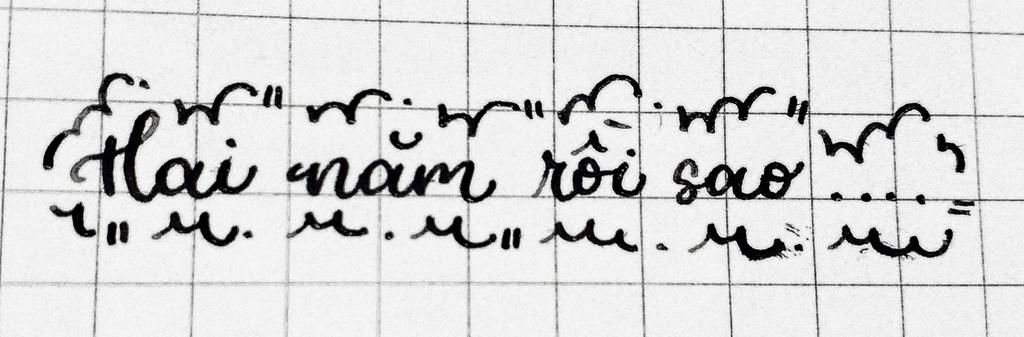 Hai năm rồi sao ....